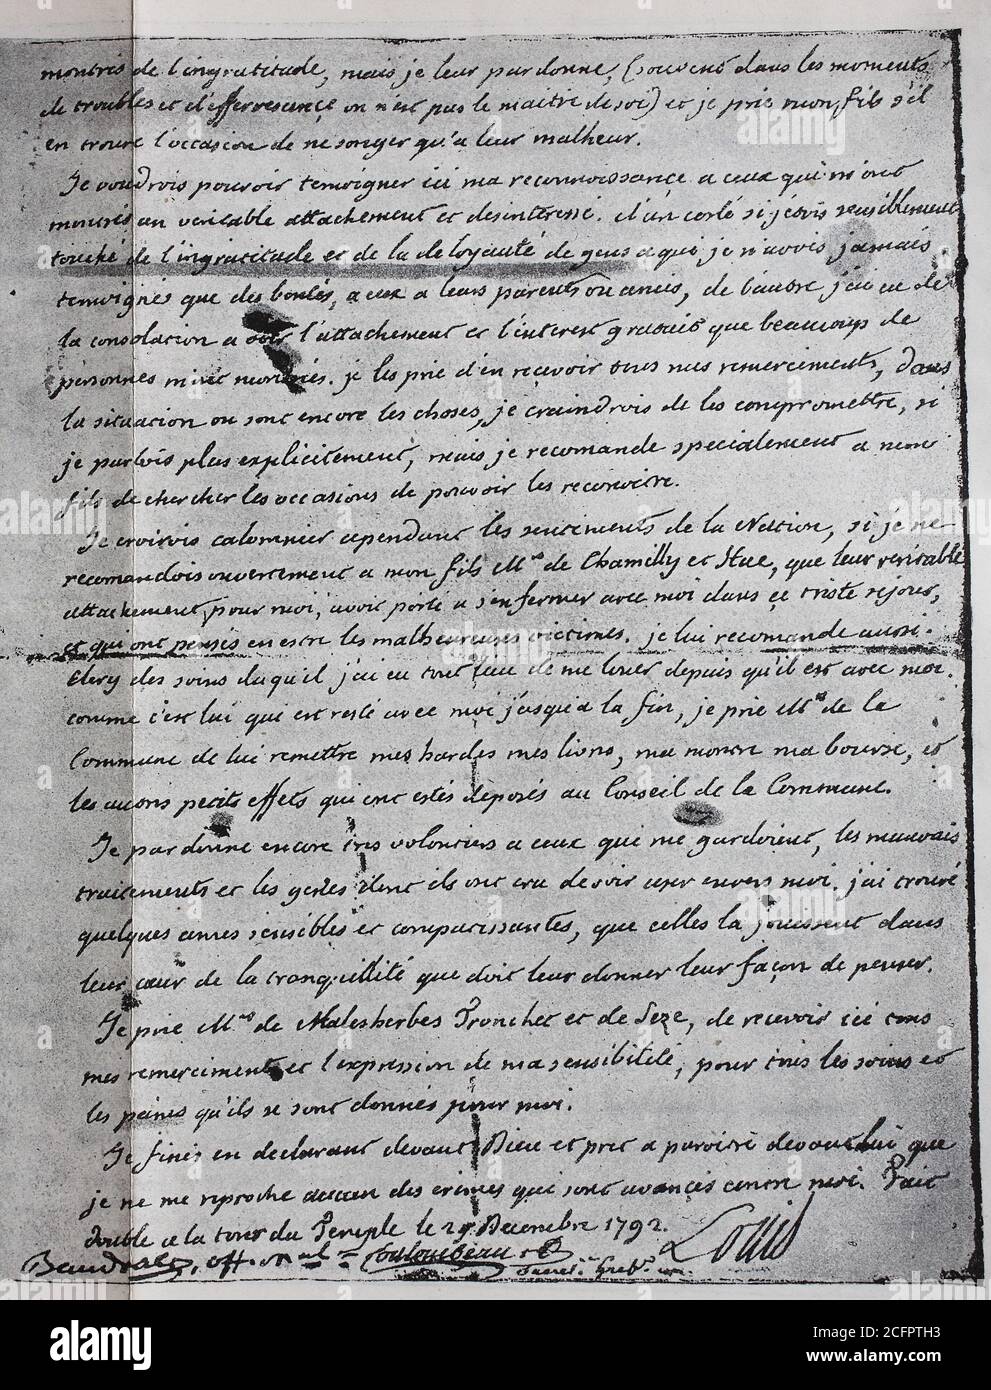 montrés de l'ingratitude, mais je leur pardonne, (souvent dans les moments
de troubles et d'effervescence on n'est pas le maitre de soi) et je prie mon fils s'il
en trouve l'occasion de ne songer qu'a leur malheur.
Je voudrois pouvoir temoigner ici ma reconnoissance a ceux qui m'ont
montrés un veritable attachement et desinteressé. d'un coté si j'étois sensiblement
touché de l'ingratitude et de la deloyauté de gens a qui je n'avois jamais
temoignés que des bontés, a eux a leurs parents ou amis, de l'autre j'ai eu de
la consolation a voir l'attachement et l'interest gratuit que beaucoup de
personnes m'ont montrés. je les prie d'en recevoir tous mes remerciments, dans
la situation ou sont encore les choses, je craindrois de les compromettre, si
je parlois plus explicitement, mais je recomande specialement a mon
fils de chercher les occasions de pouvoir les reconoitre.
Je croirois calomnier cependant les sentiments de la Nation, si je ne
recomandois ouvertement a mon fils Mrs de Chamilly et Hue, que leur veritable
attachement pour moi, avoit porté a s'enfermer avec moi dans ce triste sejour,
et qui ont pensés en estre les malheureuses victimes. je lui recomande aussi
Clery des soins duquil j'ai eu tout lieu de me louer depuis qu'il est avec moi.
comme c'est lui qui est resté avec moi jusqu'a la fin, je prie Mrs de la
Commune de lui remettre mes hardes mes livres, ma montre ma bourse, et
les autres petits effets qui ont estés déposés au Conseil de la Commune.
Je pardonne encore tres volontiers a ceux qui me gardoient, les mauvais
traitements et les gestes dont ils ont cru devoir user envers moi. j'ai trouvé
quelques ames sensibles et compatissantes, que celles la jouissent dans
leur cœur de la tranquillité que doit leur donner leur façon de penser.
Je prie Mrs de Malesherbes Tronchet et de Seze, de recevoir ici tous
mes remerciments et l'expression de ma sensibilité, pour tous les soins et
les peines qu'ils se sont donnés pour moi.
Je finis en declarant devant Dieu et pret a paroitre devant lui que
je ne me reproche aucun des crimes qui sont avancés contre moi. Fait
double a la tour du Temple le 25 Decembre 1792.
Louis
Baudrais, off. mal Coulombeau
alamy
Image ID: 2CFPTH3
www.alamy.com